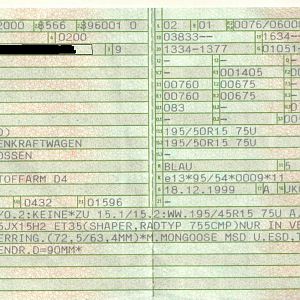 2000 8566 896001 0
0200
9
D)
ENKRAFTWAGEN
OSSEN
TOFFARM D4
0432 01596
02 01 0076/0600
03833-- 1634-
1334-1377 01051
-
- 001405
00760 00675
00760 00675
083 -
-
195/50R15 75U
195/50R15 75U
-
-
BLAU 5
e13*95/54*0009*11
18.12.1999 A JUK
YO.2:KEINE*ZU 15.1/15.2:WW.195/45R15 75U A.
5JX15H2 ET35(SHAPER,RADTYP 755CMP)NUR IN VE
ERRING.(72,5/63,4MM)*M.MONGOOSE MSD U.ESD,T
ENDR.D=90MM*